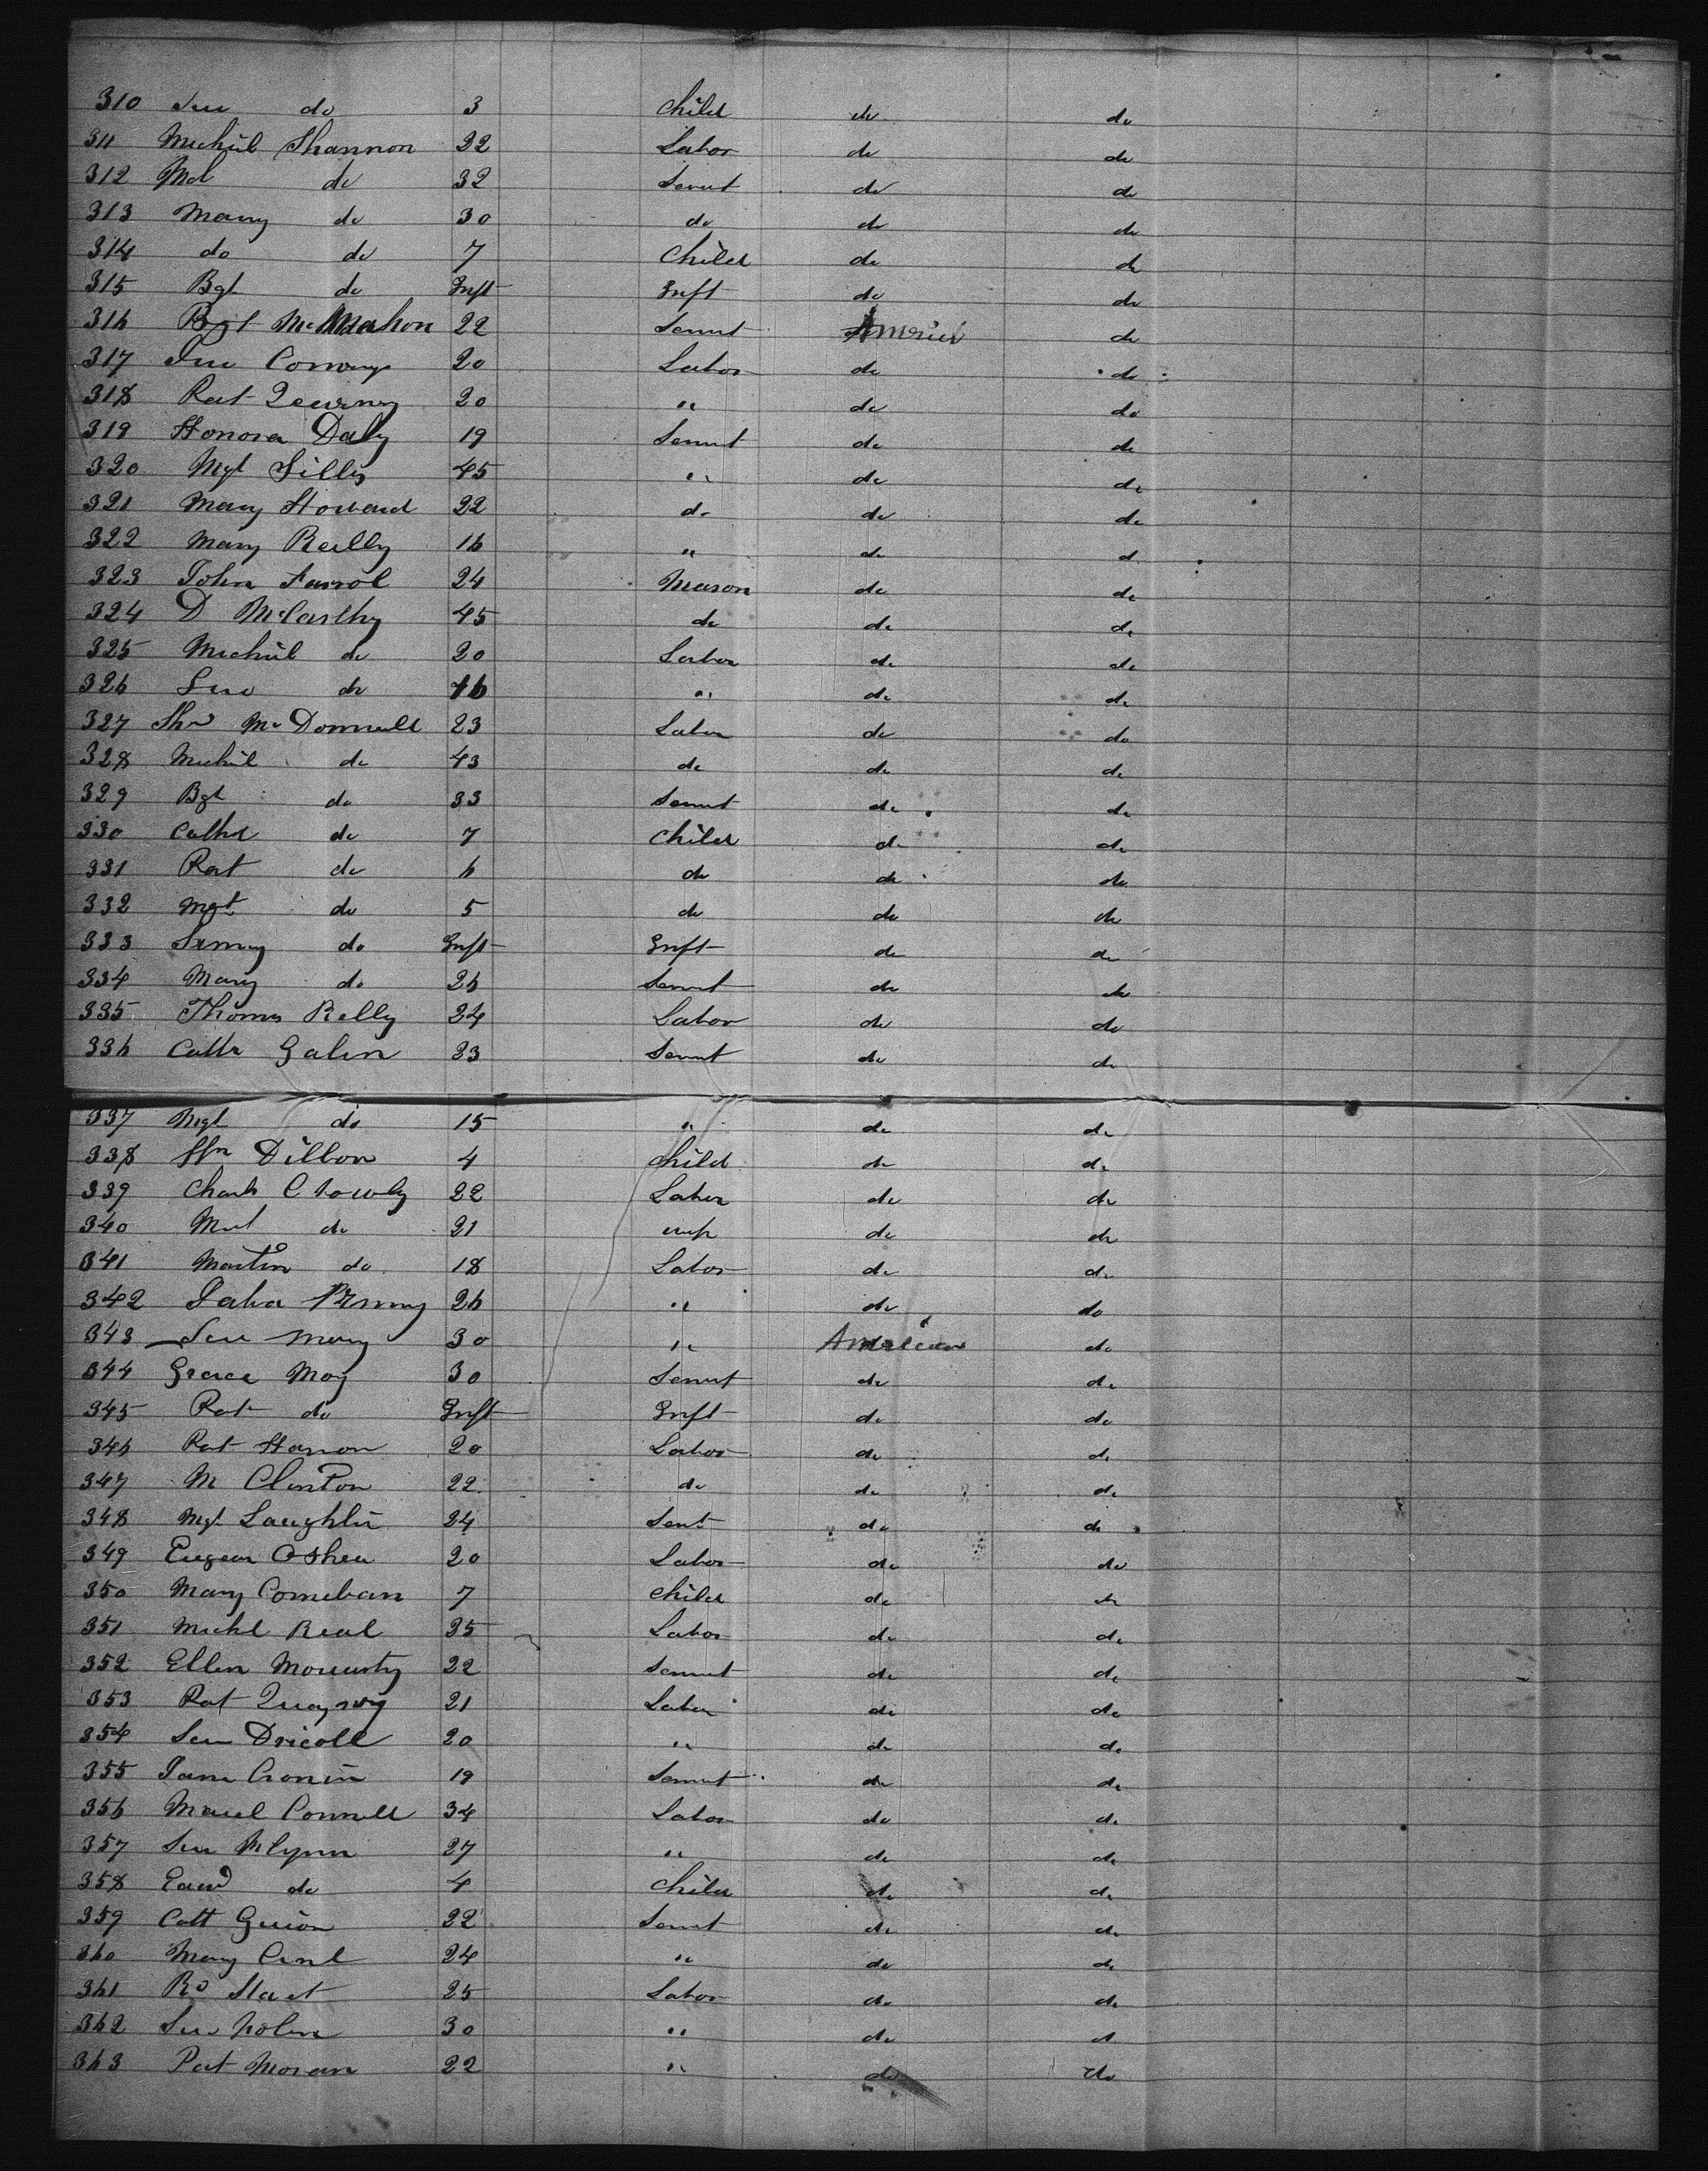 310 Jno do 3 Child do do
311 Michil Shannon 22 Labor do do
312 Ml do 32 Servt do do
313 Mary do 30 do do do
314 do do 7 Child do do
315 Bgt do Inft Inft do do
316 Bgt McMahon 22 Servt do
317 Jno Conway 20 Labor do do
318 Pat 20 " do do
319 Honora Daly 19 Servt do do
320 Mgt 45 " do do
321 Mary Howard 22 do do do
322 Mary Reilly 16 " do d
323 John Farrol 24 Mason do do
324 D McCarthy 45 do do do
325 Michil do 20 Labor do do
326 Jno do 16 " do do
327 Ths McDonnell 23 Labor do do
328 Michil do 43 do do do
329 Bgt do 33 Servt do do
330 Cathr do 7 Child do do
331 Pat do 6 do do do
332 Mgt do 5 do do do
333 do Inft Inft do do
334 Mary do 26 Servt do do
335 Thoms Relly 24 Labor do do
336 Cathr Galin 23 Servt do do
337 Mgt do 15 " do do
338 Dillon 4 Child do do
339 Charls Crowly 22 Labor do do
340 do 21 wife do do
341 Martin do 18 Labor do do
342 26 " do do
343 Jno 30 " American do
344 Grace May 30 Servt do do
345 Pat do Inft Inft do do
346 Pat Hanon 20 Labor do do
347 M Clinton 22 do do do
348 Mgt Laughlin 24 Sert do do
349 Eugean OShea 20 Labor do do
350 Mary 7 Child do do
351 Michl Real 35 Labor do do
352 Ellen 22 Servt do do
353 Pat 21 Labor do do
354 Jno Dricoll 20 " do do
355 Jane Cronin 19 Servt do do
356 Connell 34 Labor do do
357 Jno 27 " do do
358 Edwd do 4 Child do do
359 Catt 22 Servt do do
360 Mary 24 " do do
361 Rd 25 Labor do do
362 Jno Nolin 30 " do d
363 Pat Moran 22 " do do